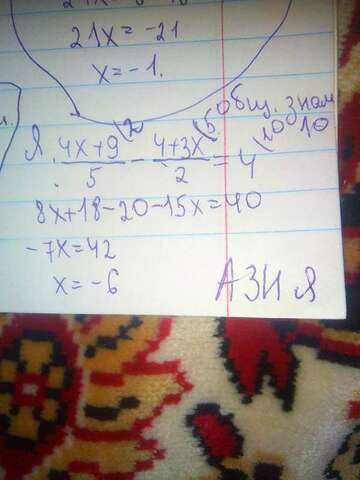 21x = -21
x = -1.
общ. знам
10
Я. (4x+9)/5 - (4+3x)/2 = 4
2 5 10
8x+18-20-15x=40
-7x=42
x=-6
АЗИЯ